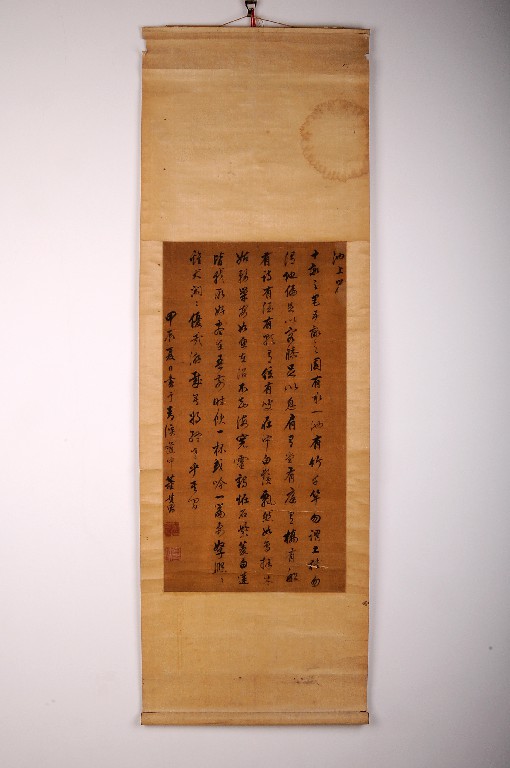 池上篇
十畝之宅五畝之園有水一池有竹千竿勿謂土狹勿
謂地偏足以容膝足以息肩有堂有庭有橋有船
有詩有酒有歌有絃有叟在中白鬚飄然如鳥擇木
姑務巢安如龜在沼不知海寬靈鶴怪石紫菱白蓮
皆我所好盡在吾前時飲一杯或吟一篇妻孥熙々
雞犬閑々優哉游哉吾將終老乎其間
甲辰夏日書于青溪道中 董其昌